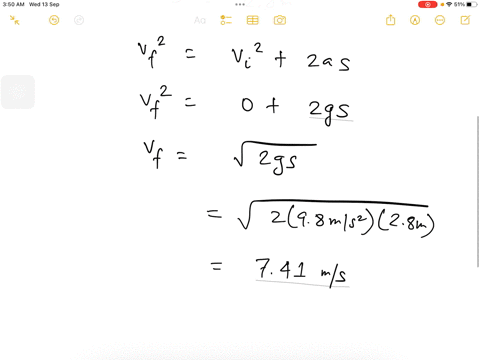 3:50 AM Wed 13 Sep
51%
Aa
v_f² = v_i² + 2as
v_f² = 0 + 2gs
v_f = √2gs
= √2(9.8m/s²)(2.8m)
= 7.41 m/s